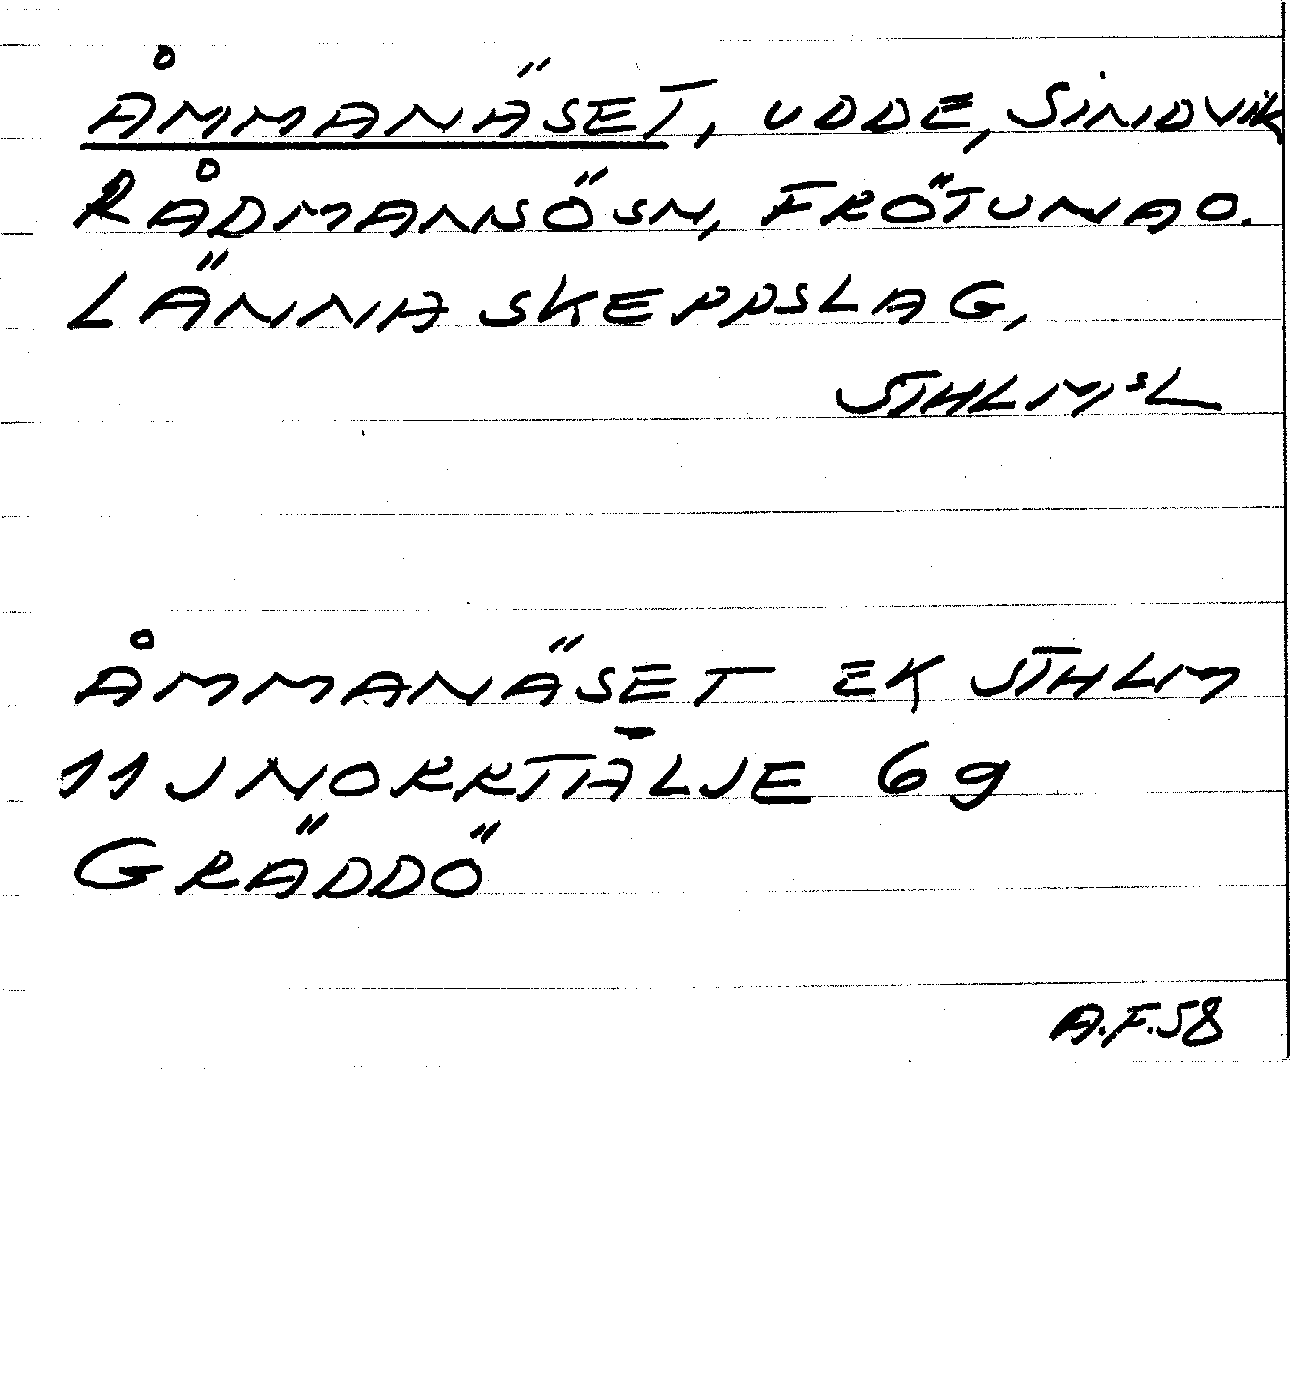 ÅMMANÄSET, UDDE, SINDVIK
RÅDMANSÖ SN, FRÖTUNA O.
LÄNNA SKEPPSLAG,
STHLMSL
ÅMMANÄSET EK STHLM
11 J NORRTÄLJE 6g
GRÄDDÖ
A.F.58